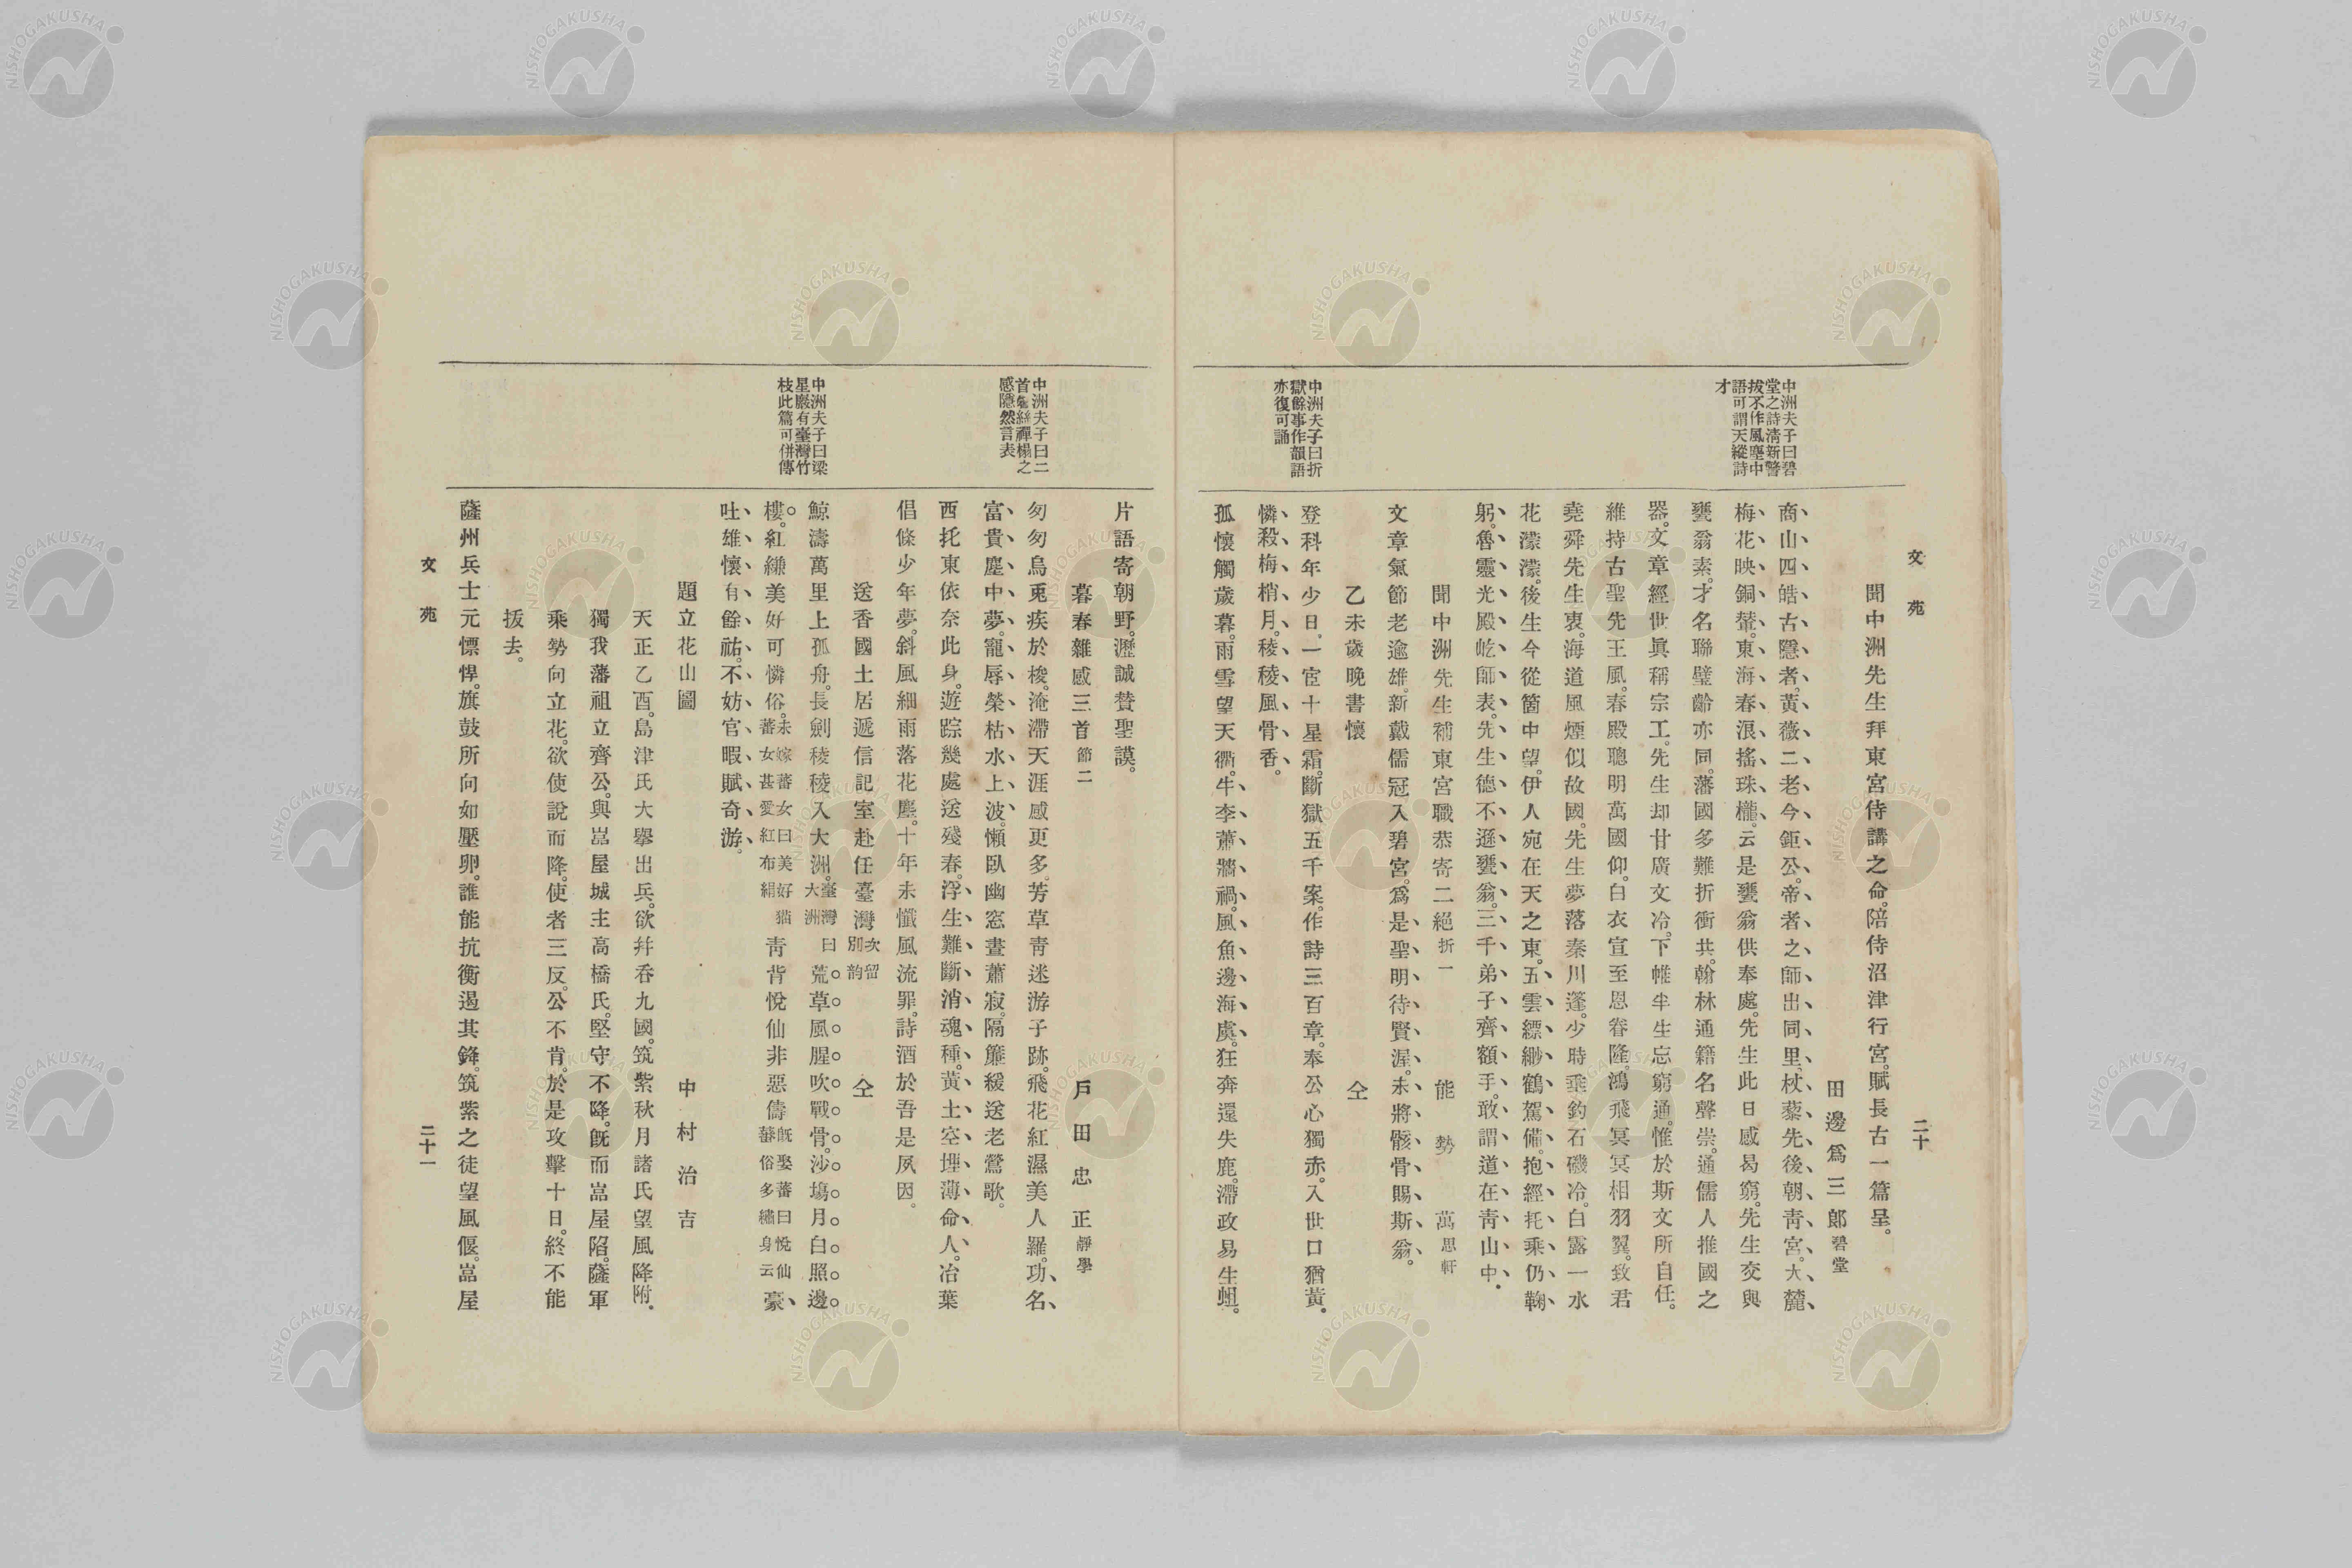 文苑
二十
中洲夫子曰碧
堂之詩淸新警
拔不作風塵中
語可謂天縱詩
才
聞中洲先生拜東宮侍講之命。陪侍沼津行宮。賦長古一篇呈。
田邊爲三郞碧堂
商山四皓古隱者。黃薇二老今鉅公。帝者之師出同里。杖藜先後朝靑宮。大麓
梅花映銅輦。東海春浪搖珠櫳。云是甕翁供奉處。先生此日感曷窮。先生交與
甕翁素。才名聯璧齡亦同。藩國多難折衝共。翰林通籍名聲崇。通儒人推國之
器。文章經世眞稱宗工。先生却甘廣文冷。下帷半生忘窮通。惟於斯文所自任。
維持古聖先王風。春殿聰明萬國仰。白衣宣至恩眷隆。鴻飛冥冥相羽翼。致君
堯舜先生衷。海道風煙似故國。先生夢落秦川蓬。少時垂釣石磯冷。白露一水
花濛濛。後生今從箇中望。伊人宛在天之東。五雲縹緲鶴駕備。抱經托乘仍鞠
躬。魯靈光殿屹師表。先生德不遜甕翁。三千弟子齊額手。敢謂道在靑山中。
聞中洲先生補東宮職恭寄二絕折一
能勢萬思軒
文章氣節老逾雄。新戴儒冠入碧宮。爲是聖明待賢渥。未將骸骨賜斯翁。
乙未歲晚書懷
仝
中洲夫子曰折
獄餘事作韻語
亦復可誦
登科年少日。一宦十星霜。斷獄五千案。作詩三百章。奉公心獨赤。入世口猶黃。
憐殺梅梢月。稜稜風骨香。
孤懷觸歲暮。雨雪望天衢。牛李蕭牆禍。風魚邊海虞。狂奔還失鹿。滯政易生蛆。
片語寄朝野。瀝誠贊聖謨。
暮春雜感三首節二
戶田忠正靜學
中洲夫子曰二
首鬢絲禪榻之
感隱然言表
匆匆烏兎疾於梭。淹滯天涯感更多。芳草靑迷游子跡。飛花紅濕美人羅。功名
富貴塵中夢。寵辱榮枯水上波。懶臥幽窓晝蕭寂。隔簾緩送老鶯歌。
西托東依奈此身。遊踪幾處送殘春。浮生難斷消魂種。黃土空埋薄命人。冶葉
倡條少年夢。斜風細雨落花塵。十年未懺風流罪。詩酒於吾是夙因。
送香國土居遞信記室赴任臺灣次留別韵
仝
中洲夫子曰梁
星巖有臺灣竹
枝此篇可併傳
鯨濤萬里上孤舟。長劍稜稜入大洲。臺灣曰大洲荒草風腥吹戰骨。沙塲月白照邊
樓。紅縑美好可憐俗。未嫁蕃女曰美好猫蕃女甚愛紅布絹靑背悅仙非惡儔旣娶蕃曰悅仙蕃俗多繡身云豪
吐雄懷有餘祐。不妨官暇賦奇游。
題立花山圖
中村治吉
天正乙酉。島津氏大擧出兵。欲幷呑九國。筑紫秋月諸氏望風降附。
獨我藩祖立齊公。與嵓屋城主高橋氏。堅守不降。旣而嵓屋陷。薩軍
乘勢向立花。欲使說而降。使者三反。公不肯。於是攻擊十日。終不能
拔去。
薩州兵士元慓悍。旗鼓所向如壓卵。誰能抗衡遏其鋒。筑紫之徒望風偃。嵓屋
文苑
二十一
NISHOGAKUSHA